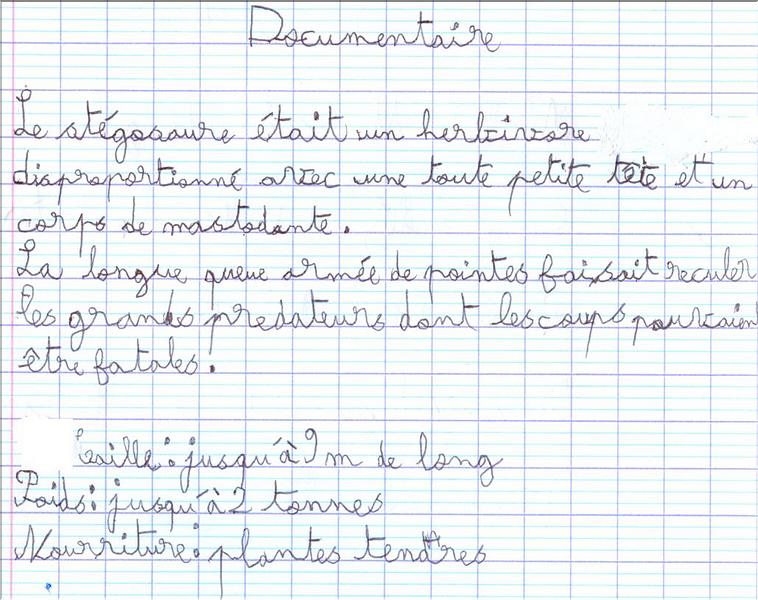 Documentaire
Le stégosaure était un herbivore
disproportionné avec une toute petite tête et un
corps de mastodante.
La longue queue armée de pointes faisait reculer
les grands predateurs dont les coups pouvaien
être fatales.
taille : jusqu'à 9 m de long
Poids : jusqu'à 2 tonnes
Nourriture : plantes tendres